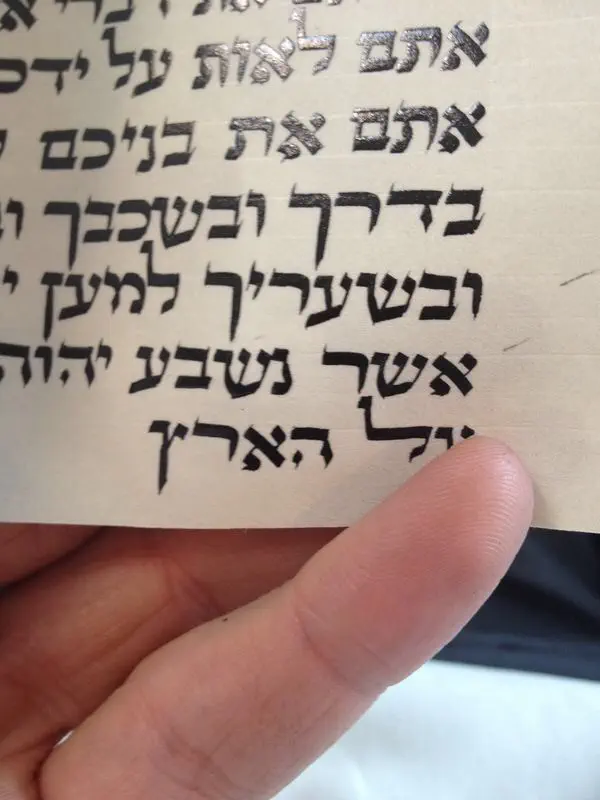 את דברי
אתם לאות על ידכ
אתם את בניכם
בדרך ובשכבך
ובשעריך למען
אשר נשבע יהוה
על הארץ